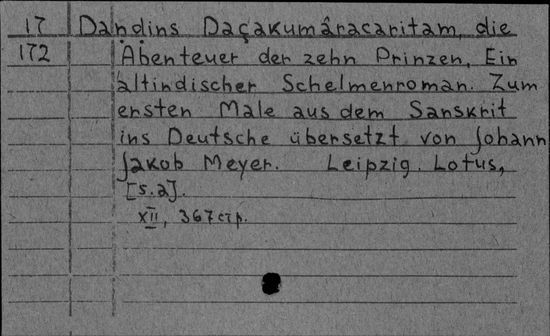 17 Daṇḍins Daçakumâracaritam, die
172 Abenteuer der zehn Prinzen, Ein
altindischer Schelmenroman. Zum
ersten Male aus dem Sanskrit
ins Deutsche übersetzt von Johann
Jakob Meyer. Leipzig. Lotus,
[s.a].
XII, 367 стр.